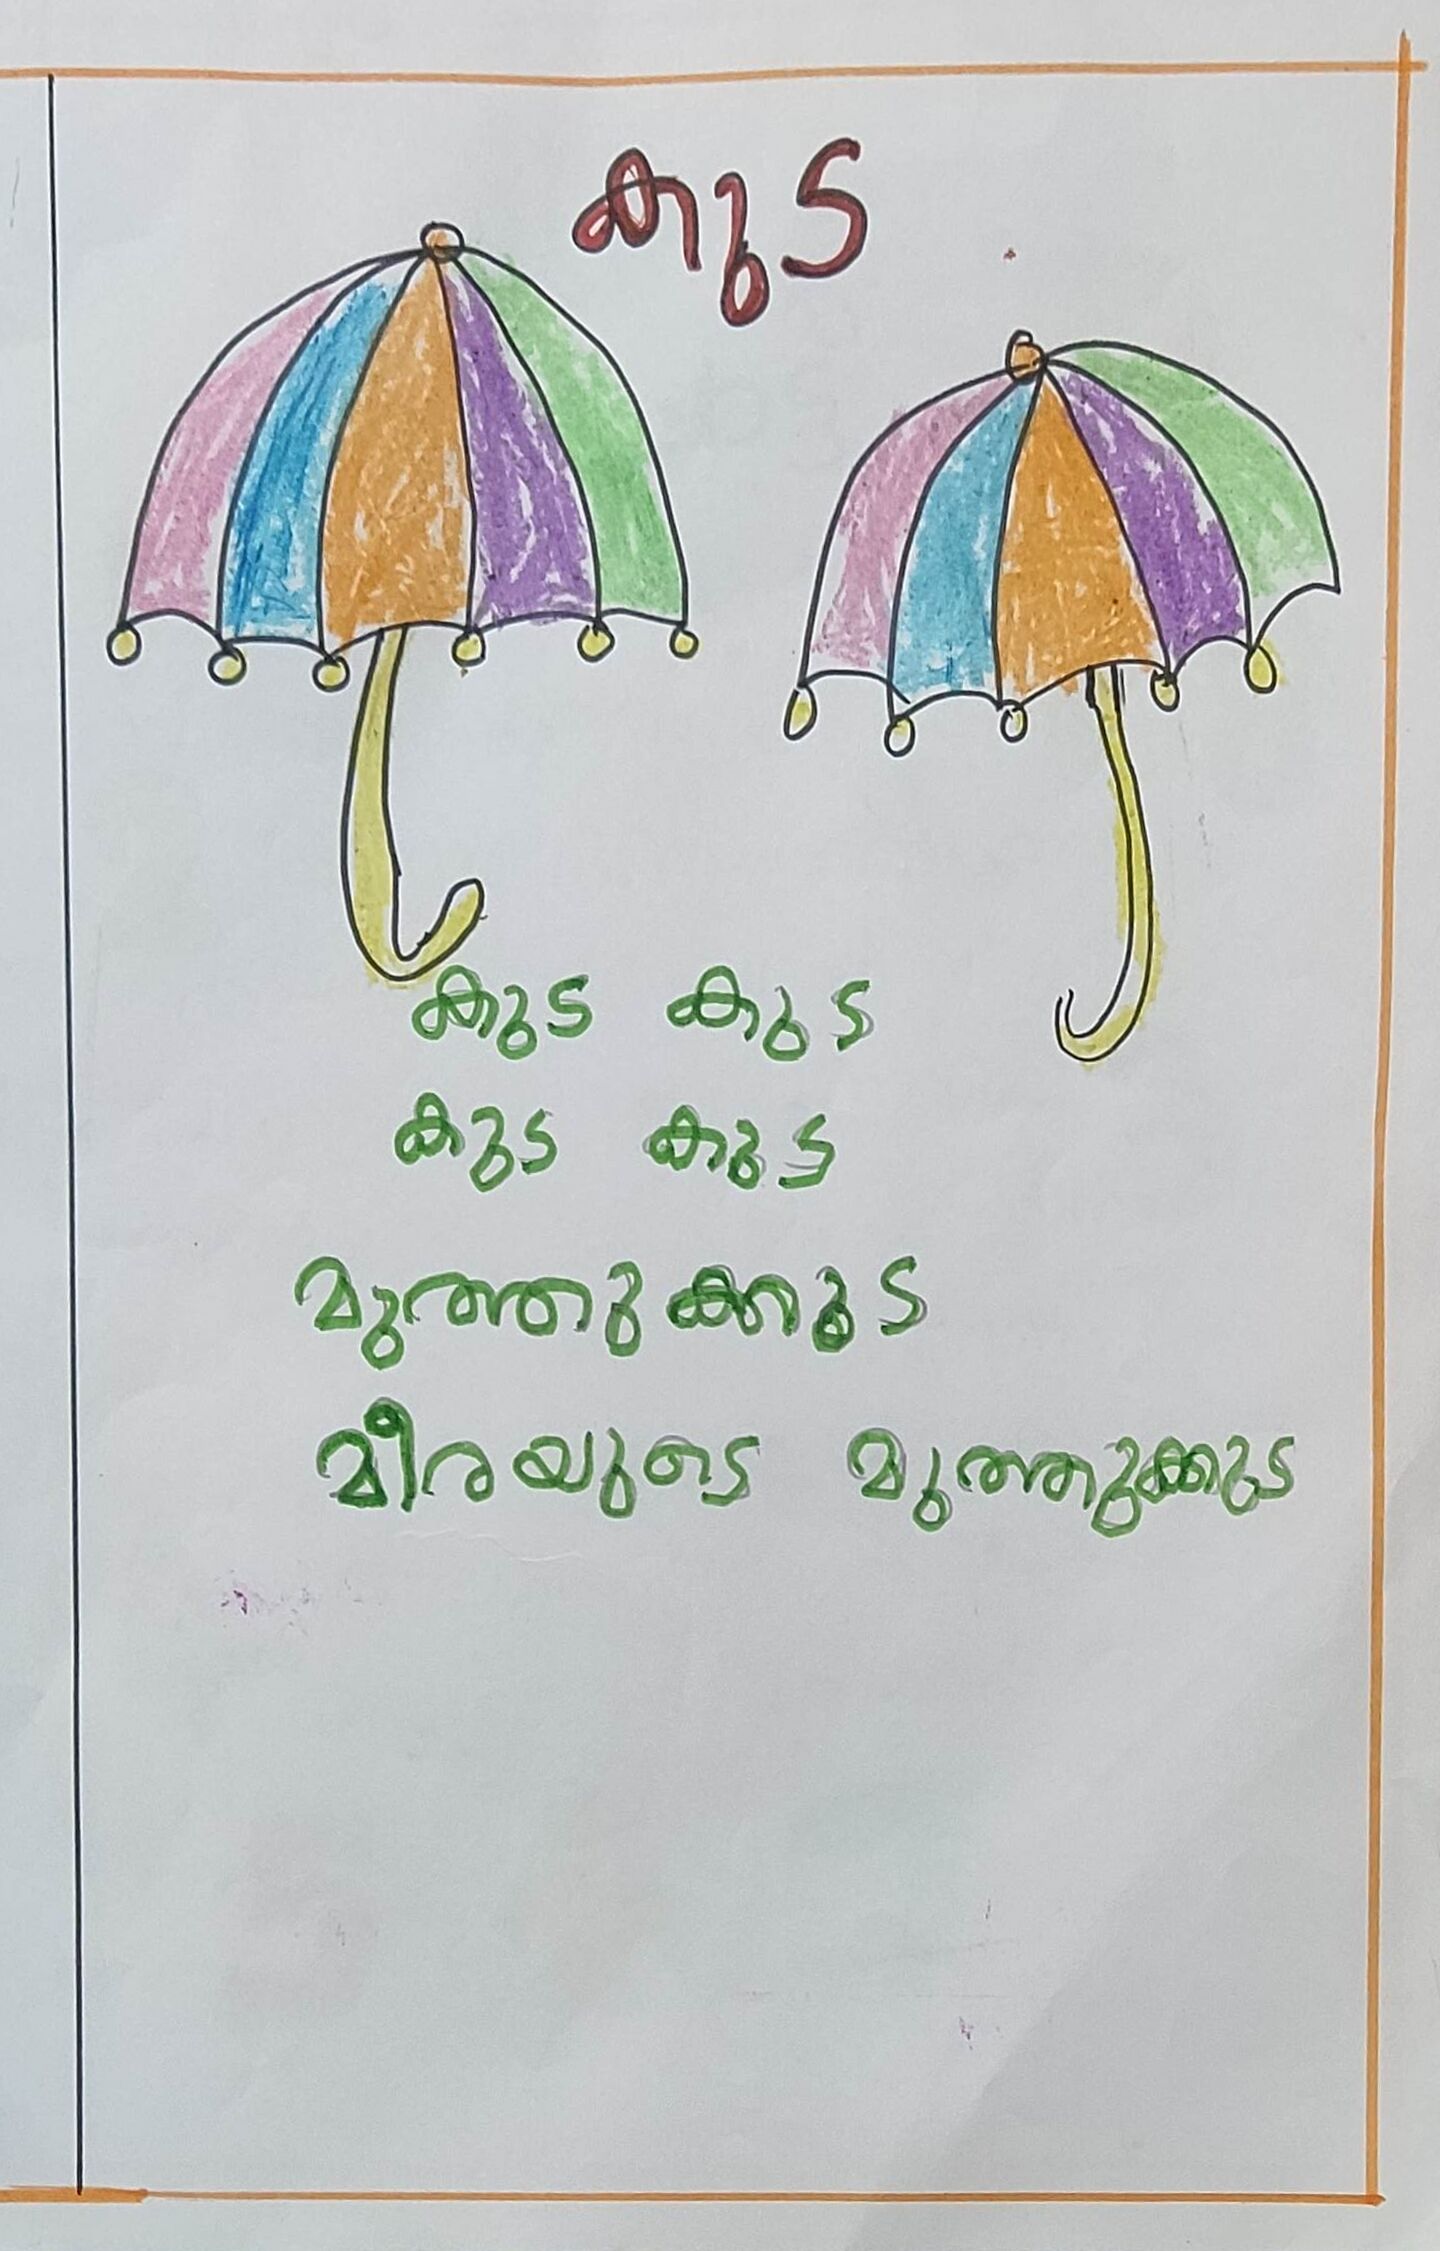 കുട
കുട കുട
കുട കുട
മുത്തുക്കുട
മീരയുടെ മുത്തുക്കുട